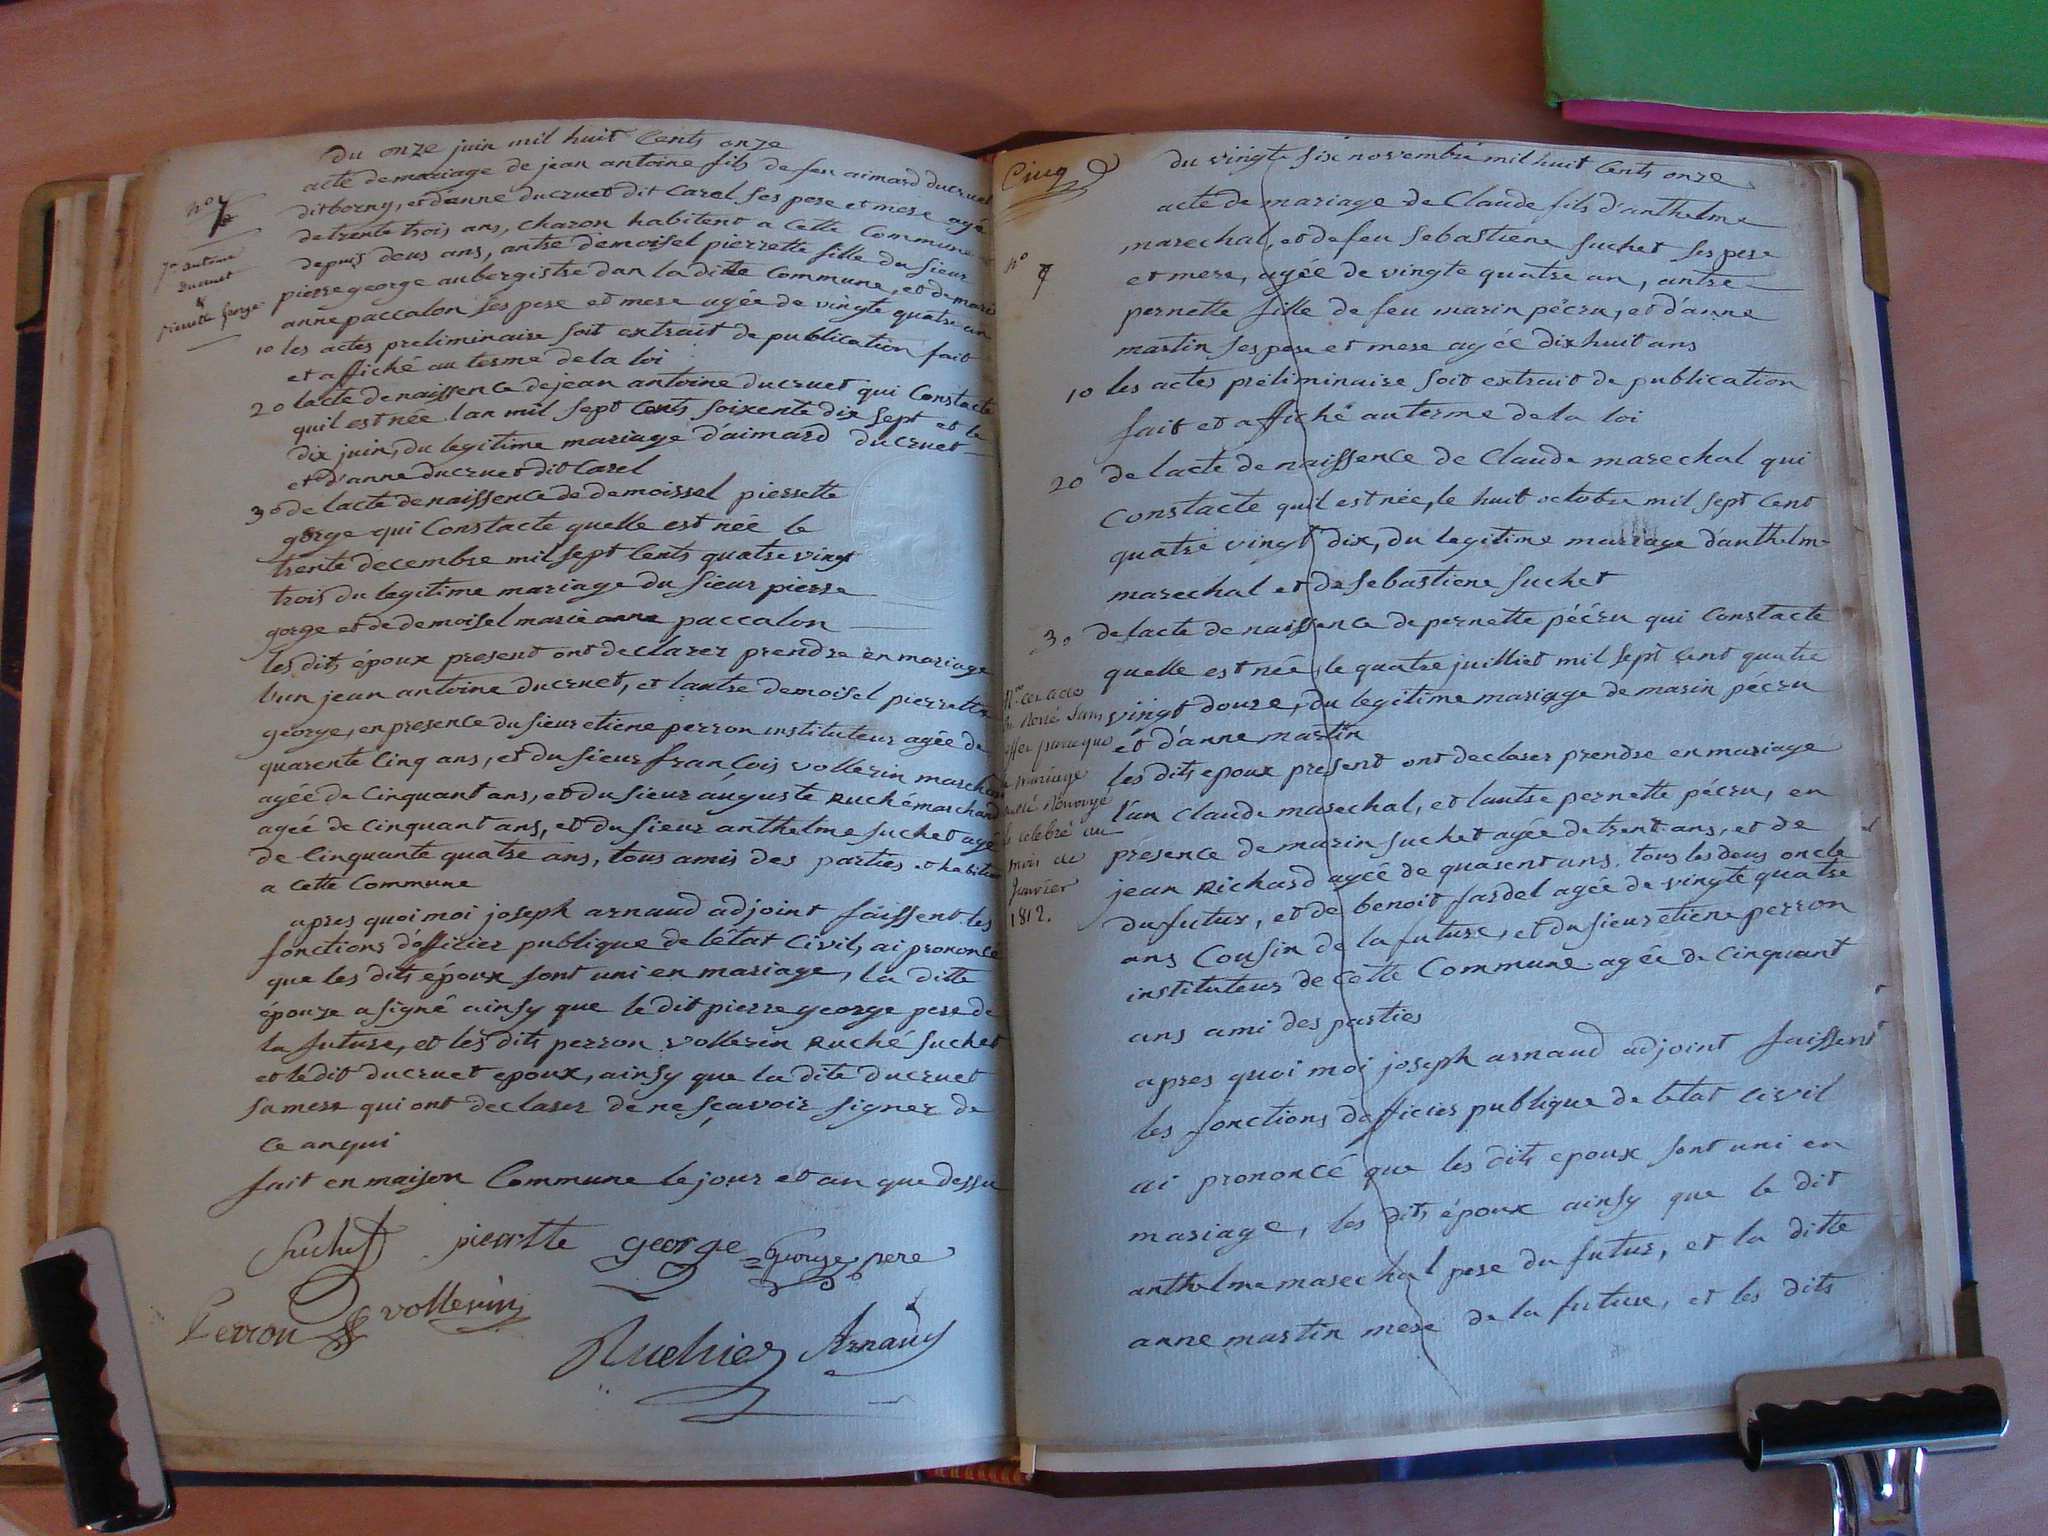 du onze juin mil huit Cents onze
acte de mariage de jean antoine fils de feu aimard ducruet
dit borny, et d'anne ducruet dit Carel ses pere et mere agé
de trente trois ans, charon habitent a Cette Commune
depuis deus ans, antre demoisel pierrette fille du sieur
pierre george aubergistre dan la ditte Commune, et de marie
anne paccalon ses pere et mere agée de vingte quatre an
1o les actes preliminaire soit extrait de publication fait
et affiché au terme de la loi
2o lacte de naissence de jean antoine ducruet qui Constacte
quil est née lan mil sept Cents soixente dix sept et le
dix juin, du legitime mariage d'aimard ducruet
et d'anne ducruet dit Carel
3o de lacte de naissence de demoissel pierrette
gorge qui Constacte quelle est née le
trente decembre mil sept Cents quatre vingt
trois du legitime mariage du sieur pierre
gorge et de demoisel marie anne paccalon
les dits époux present ont declarer prendre en mariage
lun jean antoine ducruet, et lautre demoisel pierrette
george, en presence du sieur etiene perron instituteur agée de
quarente Cinq ans, et du sieur françois vollerin marchand
agée de Cinquant ans, et du sieur auguste Ruché marchand
ageé de cinquant ans, et du sieur anthelme suchet agé
de Cinquante quatre ans, tous amis des parties et habitan
a Cette Commune
apres quoi moi joseph arnaud adjoint faissent les
fonctions d'officier publique de létat Civil, ai prononcé
que les dits époux sont uni en mariage, la ditte
épouze a signé ainsy que le dit pierre george pere de
la future, et les dits perron vollerin Ruché suchet
et le dit ducruet epoux, ainsy que la dite ducruet
sa mere qui ont declarer de ne sçavoir signer de
Ce anqui
fait en maison Commune le jour et an que dessu
Suchet pierrette george George pere
Perron vollerin
Ruchier Arnaud
no 7
Jn antoine
Ducruet
&
Pierrette George
Cinq
du vingte six novembre mil huit Cents onze
no 7
acte de mariage de Claude fils d'anthelme
marechal, et de feu sebastiene suchet ses pere
et mere, agée de vingte quatre an, antre
pernette fille de feu marin pécru, et d'anne
martin ses pere et mere agée dix huit ans
1o les actes préliminaire soit extrait de publication
fait et affiché au terme de la loi
2o de lacte de naissence de Claude marechal qui
Constacte quil est née, le huit octobre mil sept Cent
quatre vingt dix, du legitime mariage d'anthelme
marechal et de sebastiene suchet
3o de lacte de naissence de pernette pécru qui Constacte
quelle est née, le quatre juilliet mil sept Cent quatre
vingt douze, du legitime mariage de marin pécru
et d'anne martin
les dits epoux present ont declarer prendre en mariage
l'un Claude marechal, et lautre pernette pécru, en
presence de marin suchet agée de trent ans, et de
jean Richard agée de quarent ans, tous les deus oncle
du futur, et de benoit fardel agée de vingte quatre
ans Cousin de la future, et du sieur etiene perron
instituteur de Cette Commune agée de Cinquant
ans ami des parties
apres quoi moi joseph arnaud adjoint faissent
les fonctions d'officier publique de létat Civil
ai prononcé que les dits epoux sont uni en
mariage, les dits époux ainsy que le dit
anthelme marechal pere du futur, et la ditte
anne martin mere de la future, et les dits
cet acte
sans
effet parceque
le mariage
a été renvoyé
celebré au
mois de
Janvier
1812.